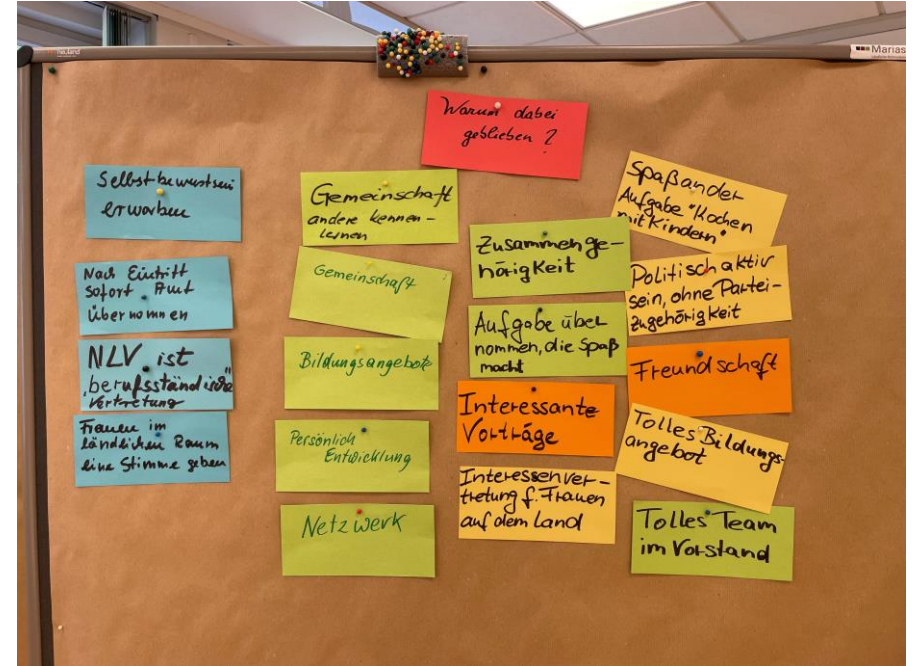 neuland
Marias
Warum dabei
geblieben ?
Selbstbewustsein
erworben
Nach Eintritt
sofort Amt
übernommen
NLV ist
"berufsständische"
Vertretung
Frauen im
ländlichen Raum
eine Stimme geben
Gemeinschaft
andere kennen-
lernen
Gemeinschaft
Bildungsangebote
Persönlich
Entwicklung
Netzwerk
Zusammenge-
hörigkeit
Aufgabe über
nommen, die Spaß
macht
Interessante
Vorträge
Interessenver-
tretung f. Frauen
auf dem Land
Spaß an der
Aufgabe "Kochen
mit Kindern"
Politisch aktiv
sein, ohne Partei-
zugehörigkeit
Freundschaft
Tolles Bildungs-
angebot
Tolles Team
im Vorstand